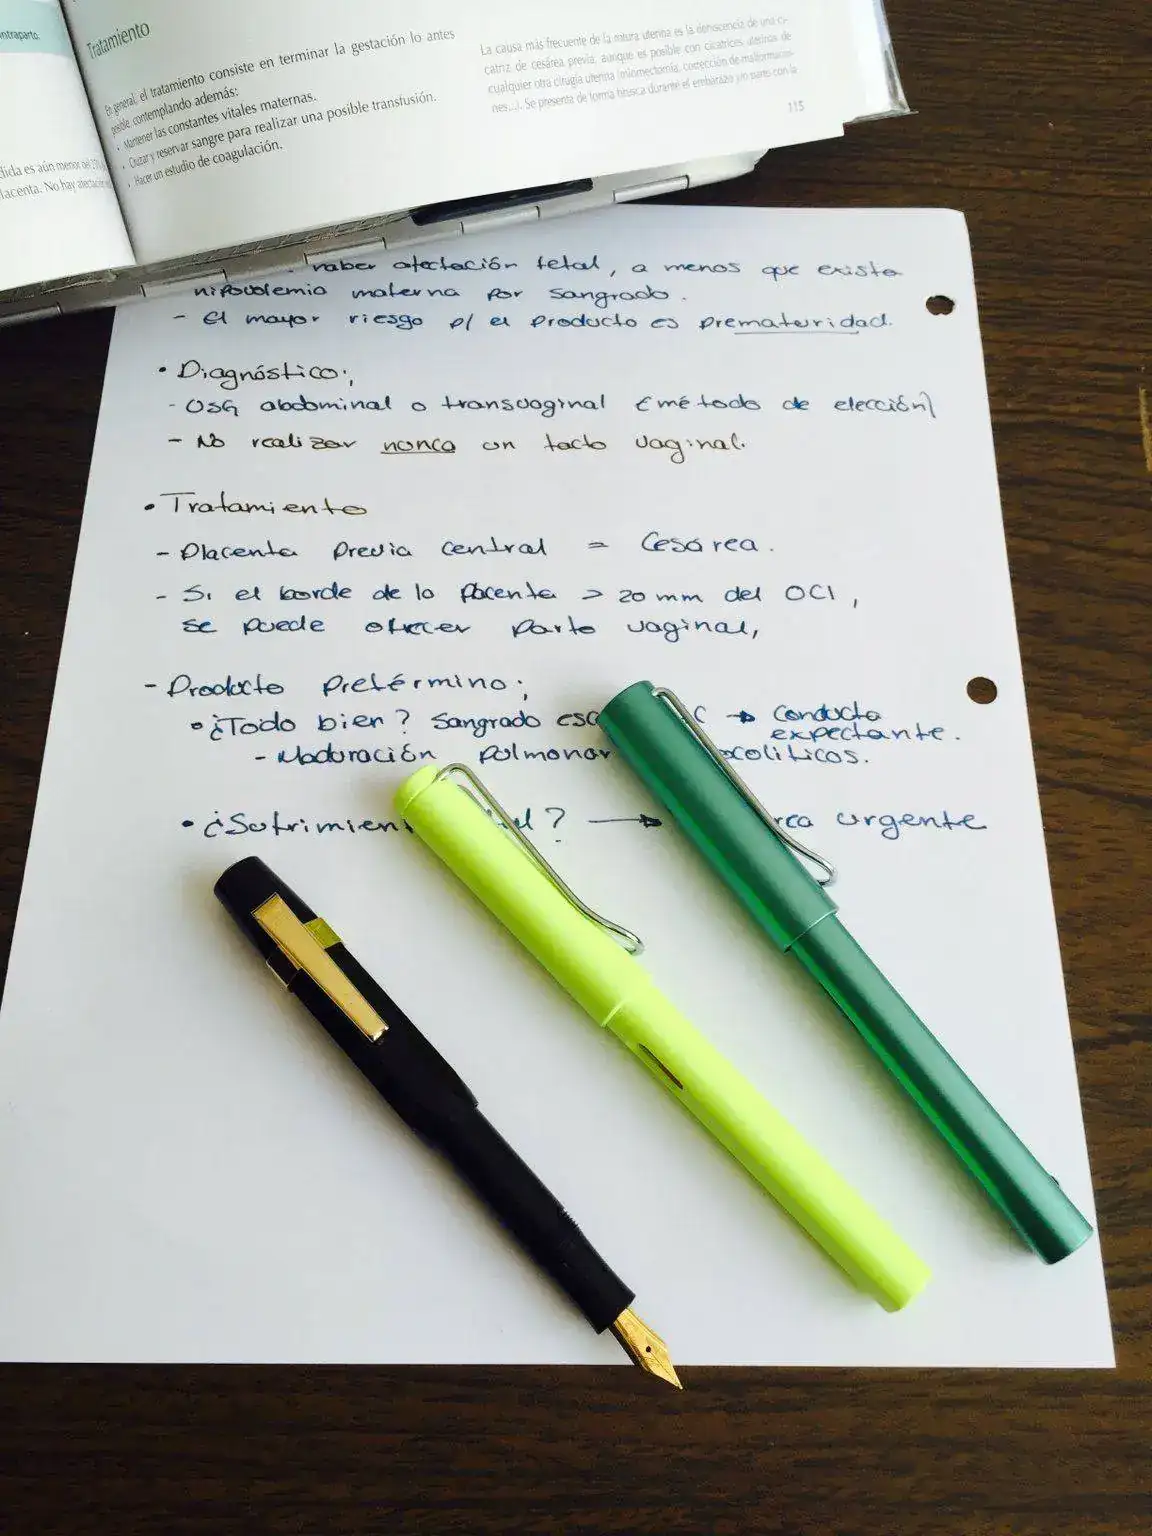 ntraparto.
dida es aún menor del
lacenta. No hay afectación
Tratamiento
En general, el tratamiento consiste en terminar la gestación lo antes
posible, contemplando además:
• Mantener las constantes vitales maternas.
• Cruzar y reservar sangre para realizar una posible transfusión.
• Hacer un estudio de coagulación.
La causa más frecuente de la rotura uterina es la dehiscencia de una ci-
catriz de cesárea previa, aunque es posible con cicatrices uterinas de
cualquier otra cirugía uterina (miomectomía, corrección de malformacio-
nes...). Se presenta de forma brusca durante el embarazo y/o parto con la
115
haber afectación fetal, a menos que exista
hipovolemia materna por sangrado.
- El mayor riesgo p/ el producto es prematuridad.
• Diagnóstico:,
- USG abdominal o transvaginal (método de elección)
- No realizar nunca un tacto vaginal.
• Tratamiento
- Placenta previa central = Cesárea.
- Si el borde de la placenta > 20 mm del OCI,
se puede ofrecer parto vaginal,
- Producto pretérmino:,
• ¿Todo bien? Sangrado esc C → conducta
expectante.
- Maduración pulmonar ocolíticos.
• ¿Sufrimien al? → rea urgente